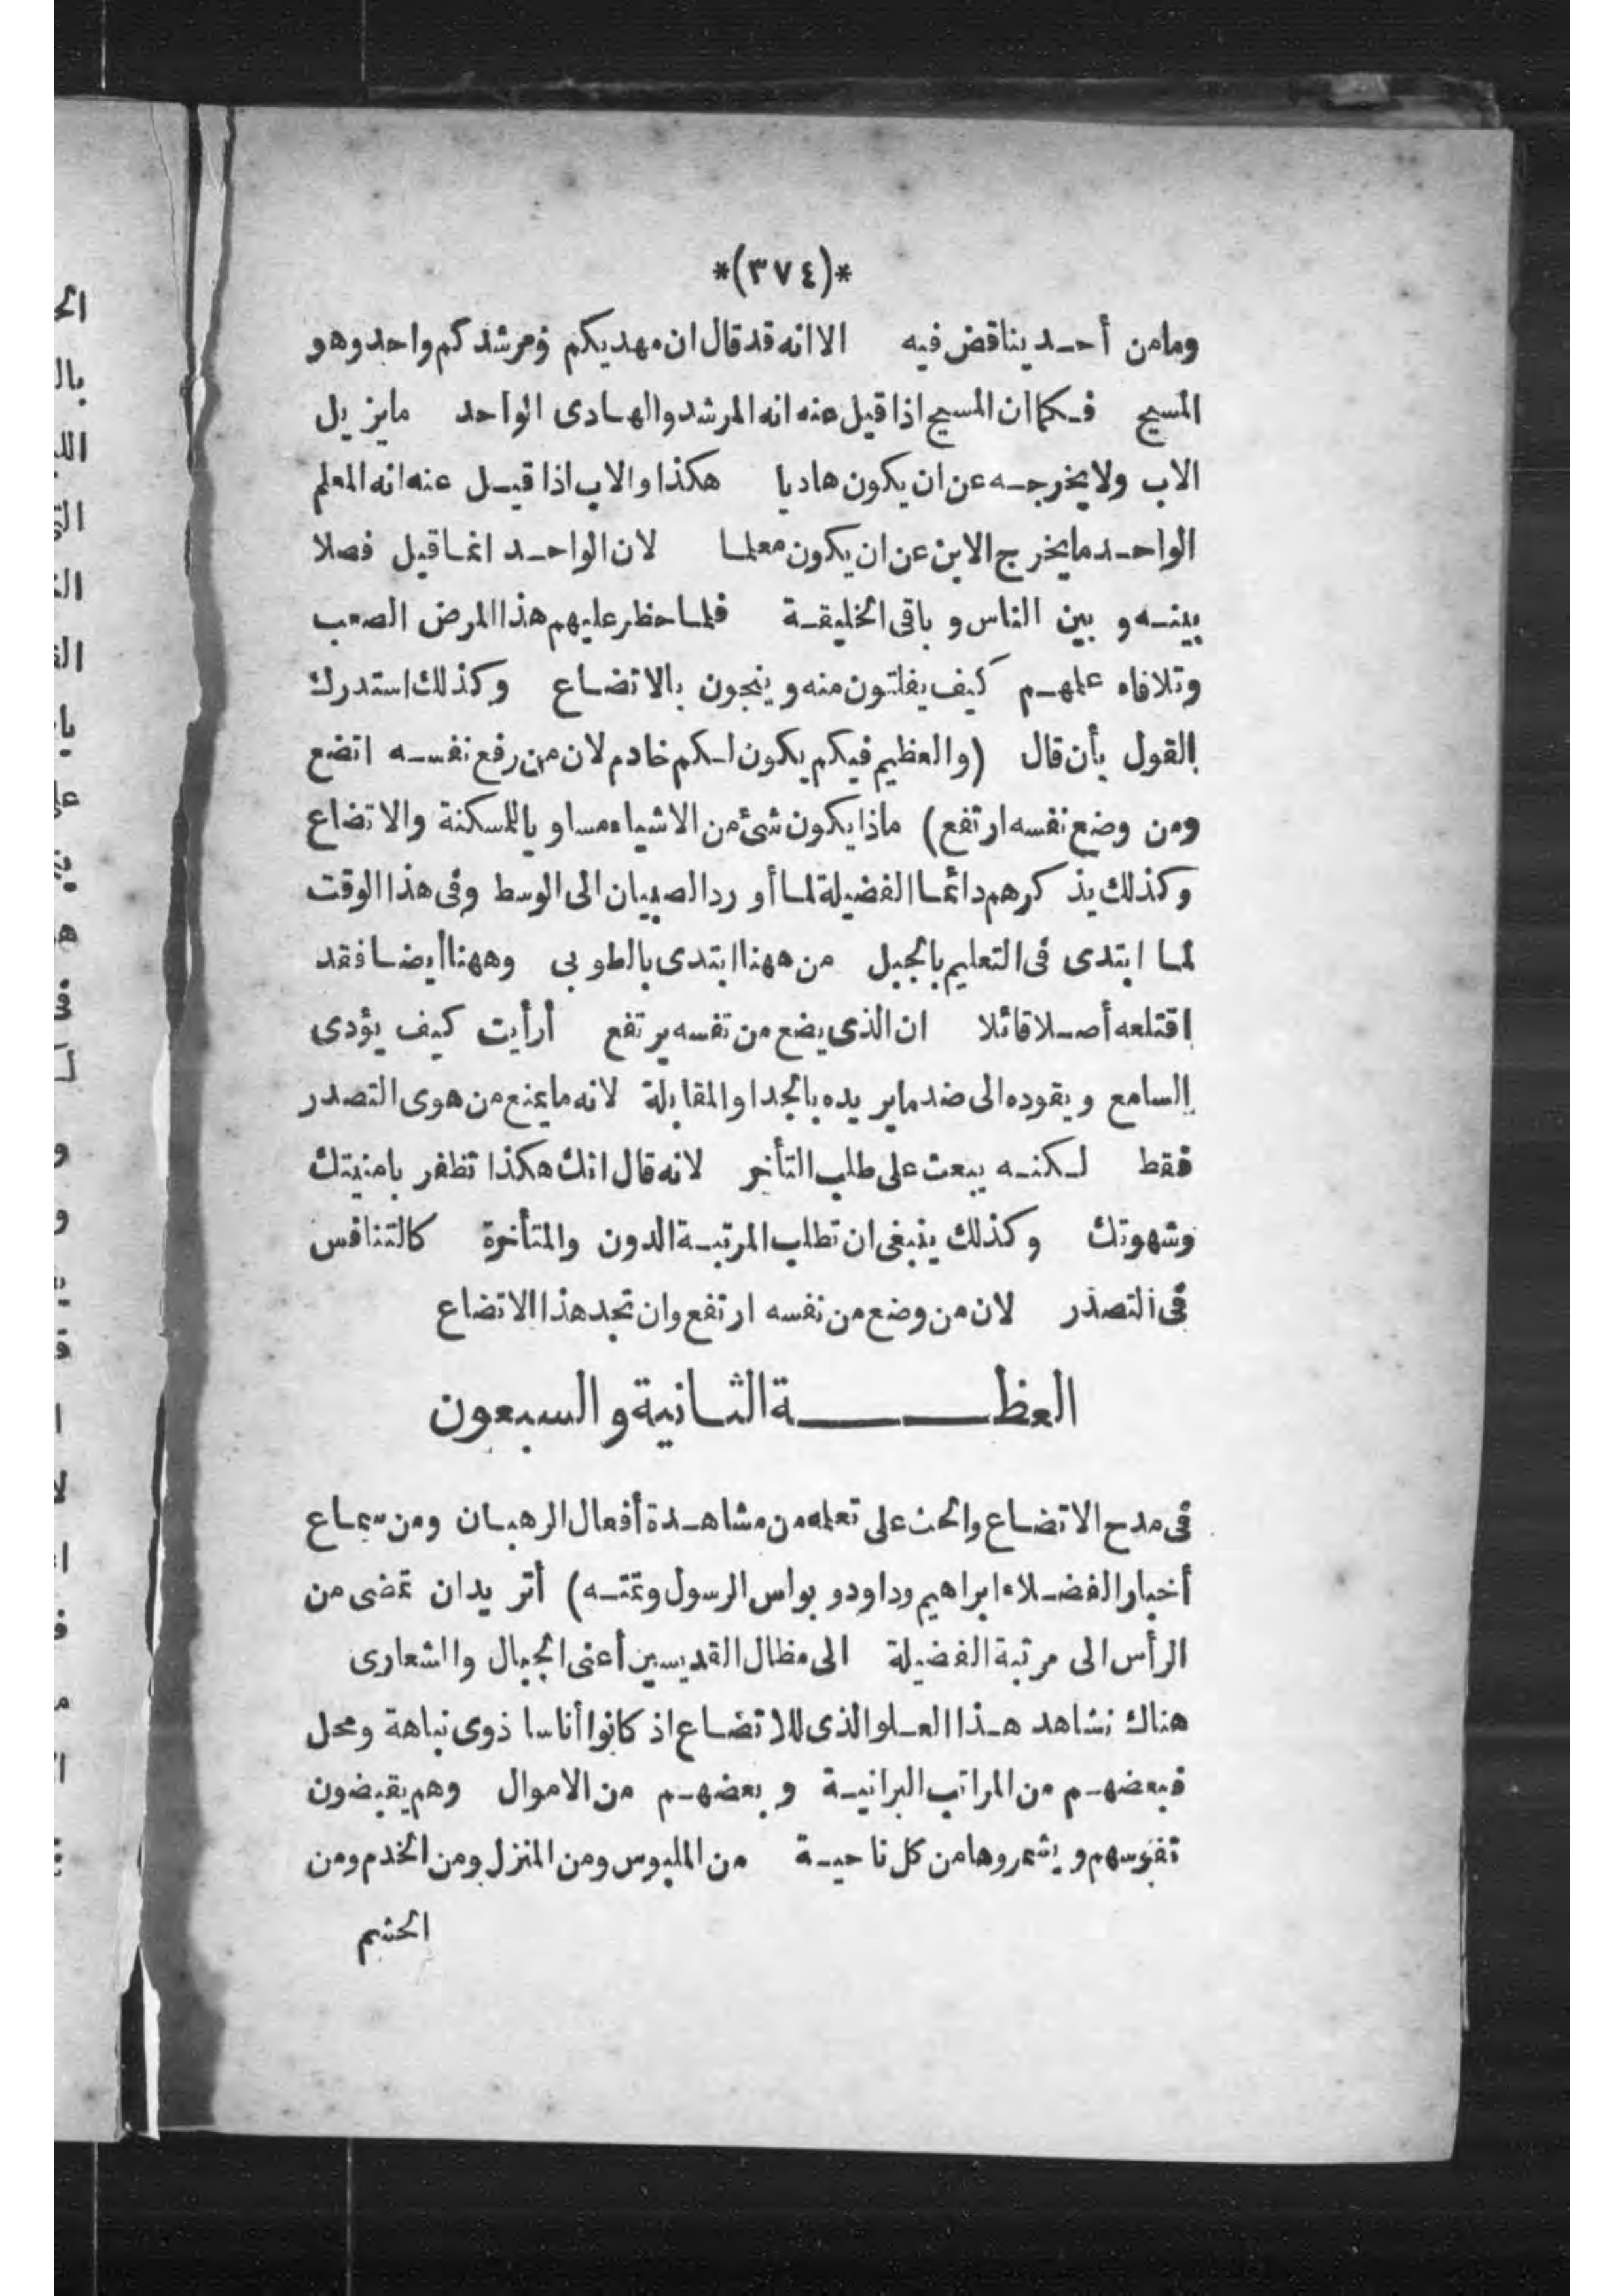 *(٣٧٤)*
ومامن أحد يناقض فيه الا انه قد قال ان مهديكم ومرشدكم واحد وهو
المسيح فكما ان المسيح اذا قيل عنه انه المرشد والهادى الواحد مايزيل
الاب ولا يخرجه عن ان يكون هاديا هكذا والاب اذا قيل عنه انه المعلم
الواحد مايخرج الابن عن ان يكون معلما لان الواحد انما قيل فصلا
بينه و بين الناس و باقى الخليقة فلما حظر عليهم هذا المرض الصعب
وتلافاه علمهم كيف يفلتون منه و ينجون بالاتضاع وكذلك استدرك
القول بأن قال (والعظيم فيكم يكون لكم خادم لان من رفع نفسه اتضع
ومن وضع نفسه ارتفع) ماذا يكون شئ من الاشياء مساو ياللسكنة والاتضاع
وكذلك يذكرهم دائما الفضيلة لما أورد الصبيان الى الوسط وفى هذا الوقت
لما ابتدى فى التعليم بالجبل من ههنا ابتدى بالطوبى وههنا أيضا فقد
اقتلعه أصلا قائلا ان الذى يضع من نفسه يرتفع أرأيت كيف يؤدى
السامع و يقوده الى ضد مايريده بالجدا والمقابلة لانه مايمنع من هوى التصدر
فقط لكنه يبعث على طلب التأخر لانه قال انك هكذا تظفر بامنيتك
وشهوتك وكذلك ينبغى ان تطلب المرتبة الدون والمتأخرة كالتنافس
فى التصدر لان من وضع من نفسه ارتفع وان تجد هذا الاتضاع
العظة الثانية والسبعون
فى مدح الاتضاع والحث على تعلمه من مشاهدة أفعال الرهبان ومن سماع
أخبار الفضلاء ابراهيم وداود و بولس الرسول وتمته) أتريد ان تمضى من
الرأس الى مرتبة الفضيلة الى مظال القديسين أعنى الجبال والشعارى
هناك نشاهد هذا العلو الذى للاتضاع اذ كانوا أناسا ذوى نباهة ومحل
فبعضهم من المراتب البرانية و بعضهم من الاموال وهم يقبضون
نفوسهم و يشمروها من كل ناحية من الملبوس ومن المنزل ومن الخدم ومن
الحشم